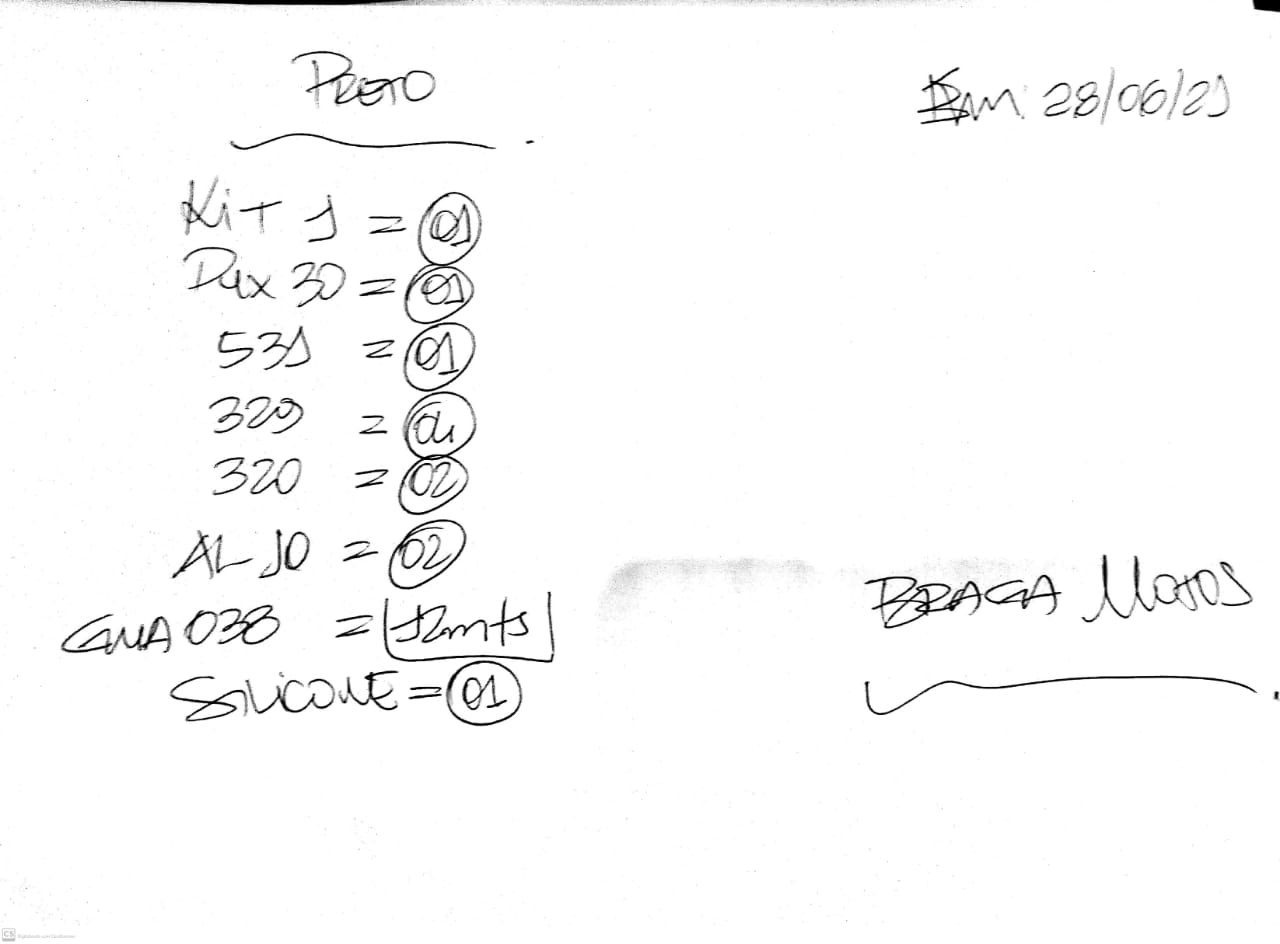 PRETO
Em: 28/06/21
Kit 1 = 01
Dux 30 = 01
531 = 01
329 = 04
320 = 02
AL 10 = 02
GUA 038 = 12mts
SILICONE = 01
BRAGA MOTOS
CS